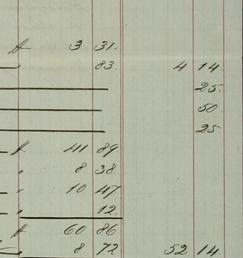 3 31.
83. 4 14
25
50.
25
41 89
8 38
10 47
12
60 86
8 72 52 14